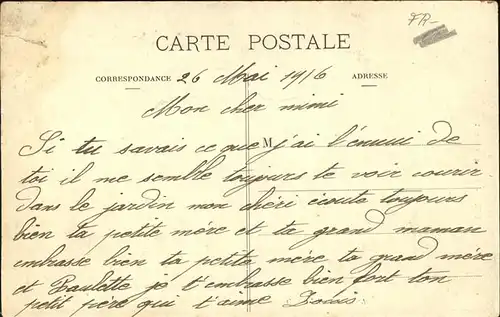 FR-
CARTE POSTALE
CORRESPONDANCE 26 Mai 1916 ADRESSE
Mon cher mimi
Si tu savais ce que M j'ai l'énnui de
toi il me semble toujours te voir courir
dans le jardin mon chéri écoute toujours
bien ta petite mére et ta grand maman
embrasse bien ta petite mére ta grand mére
et Paulette je t'embrasse bien fort ton
petit pére qui t'aime Louis